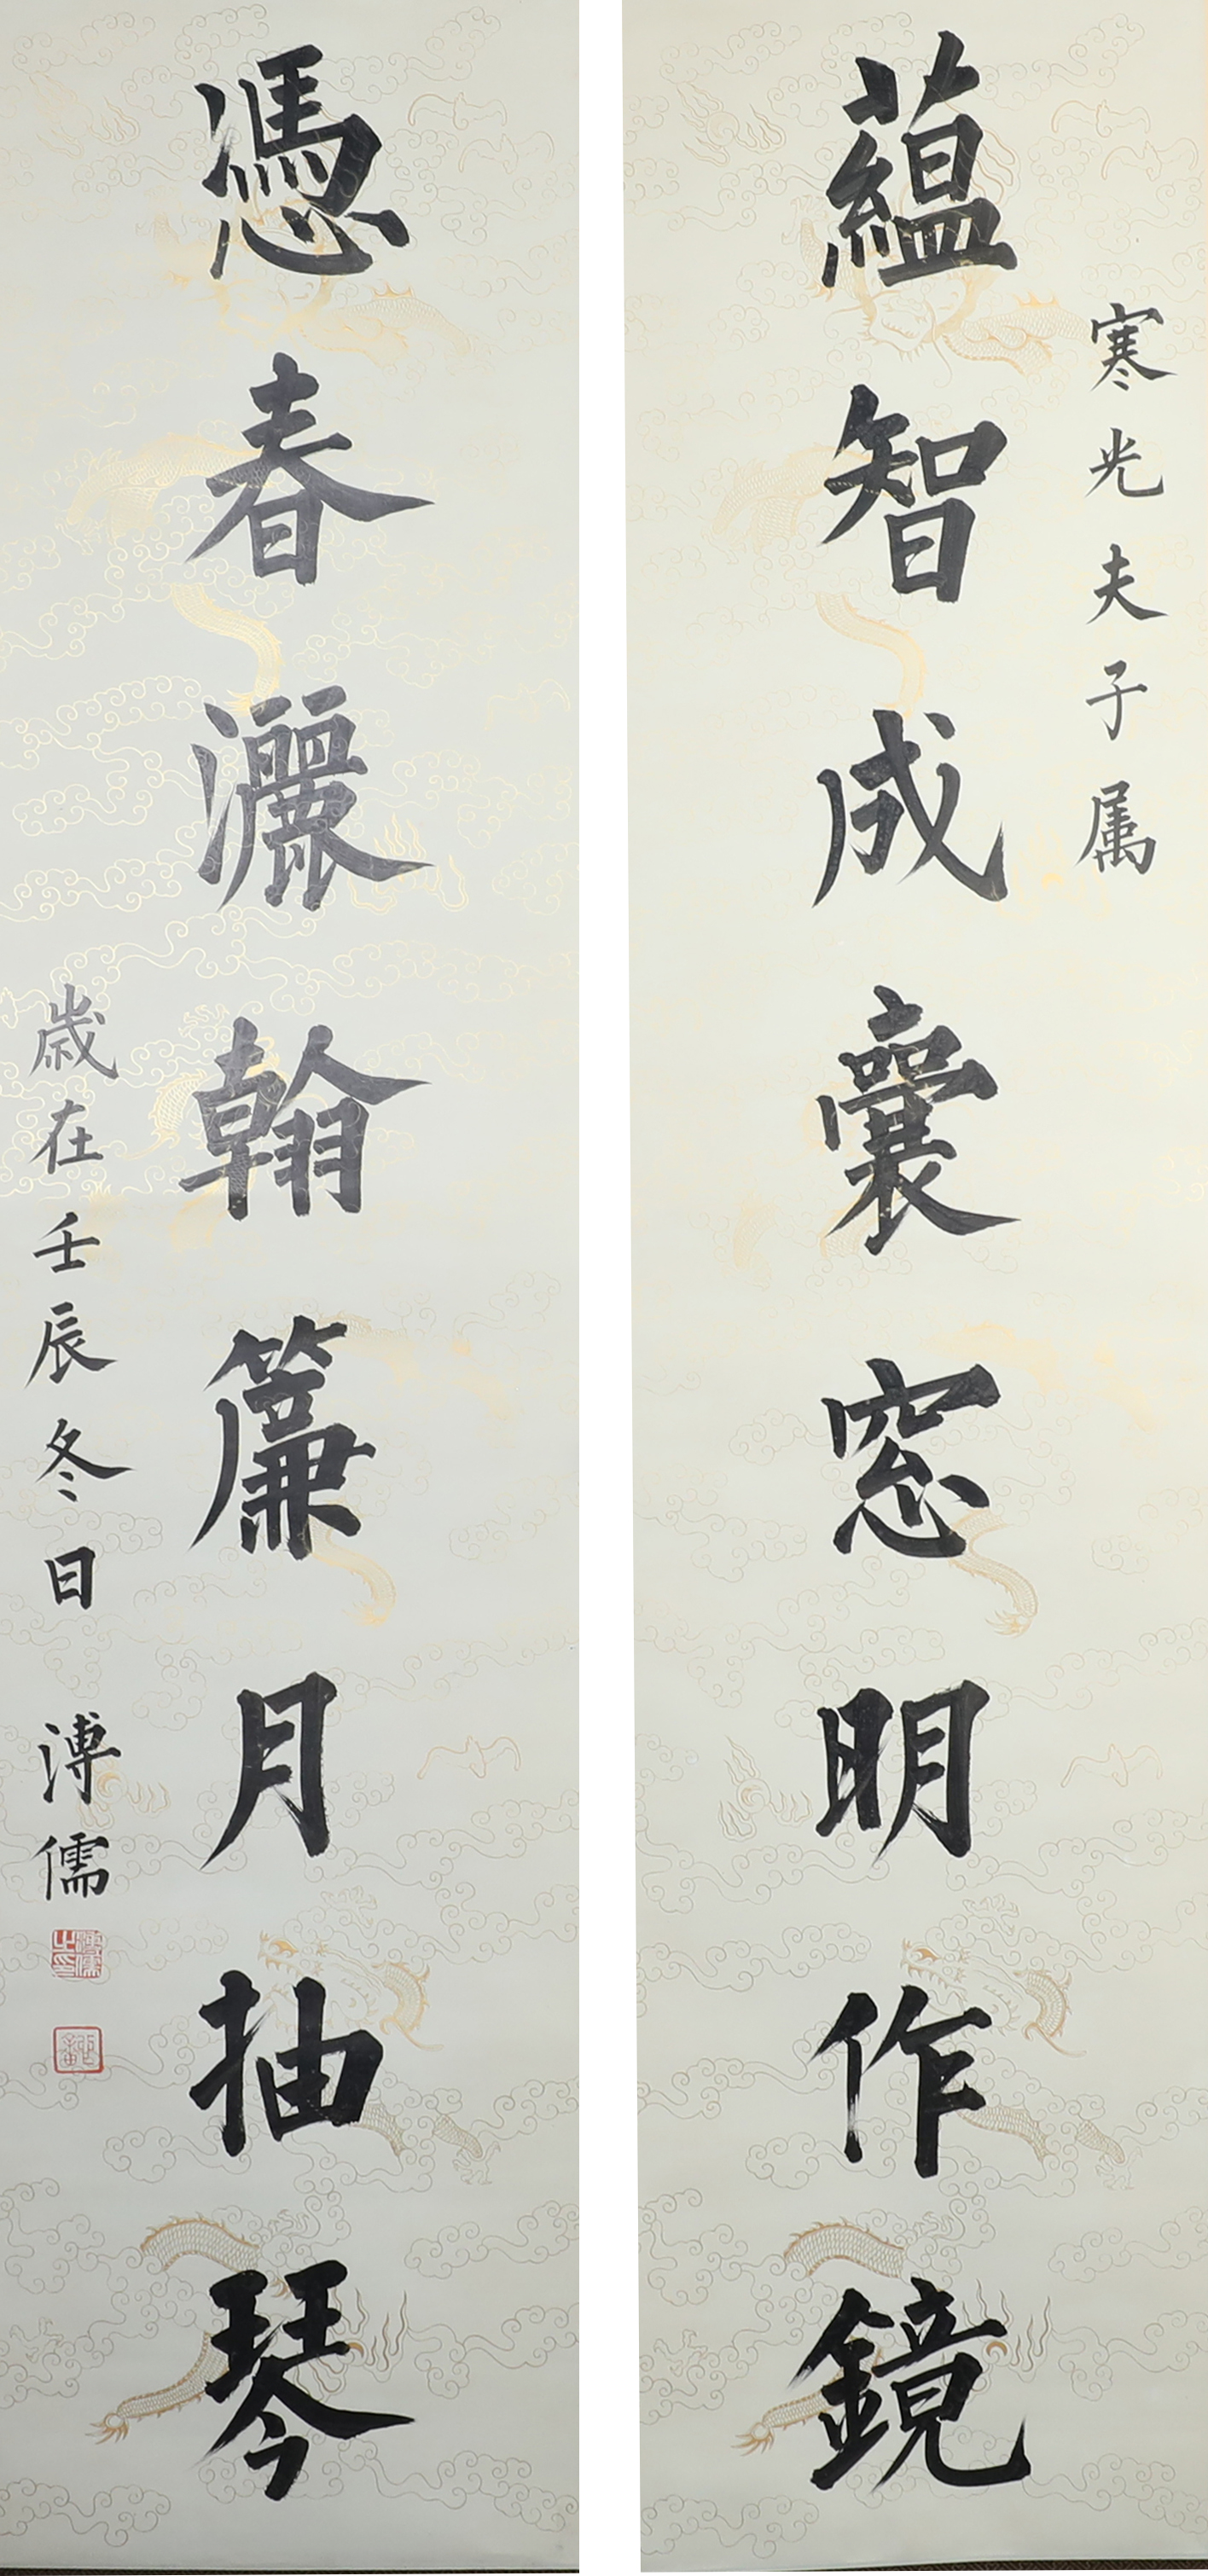 寒光夫子属
蘊智成囊窓明作鏡
憑春灑翰簾月抽琴
歲在壬辰冬日
溥儒
溥儒之印